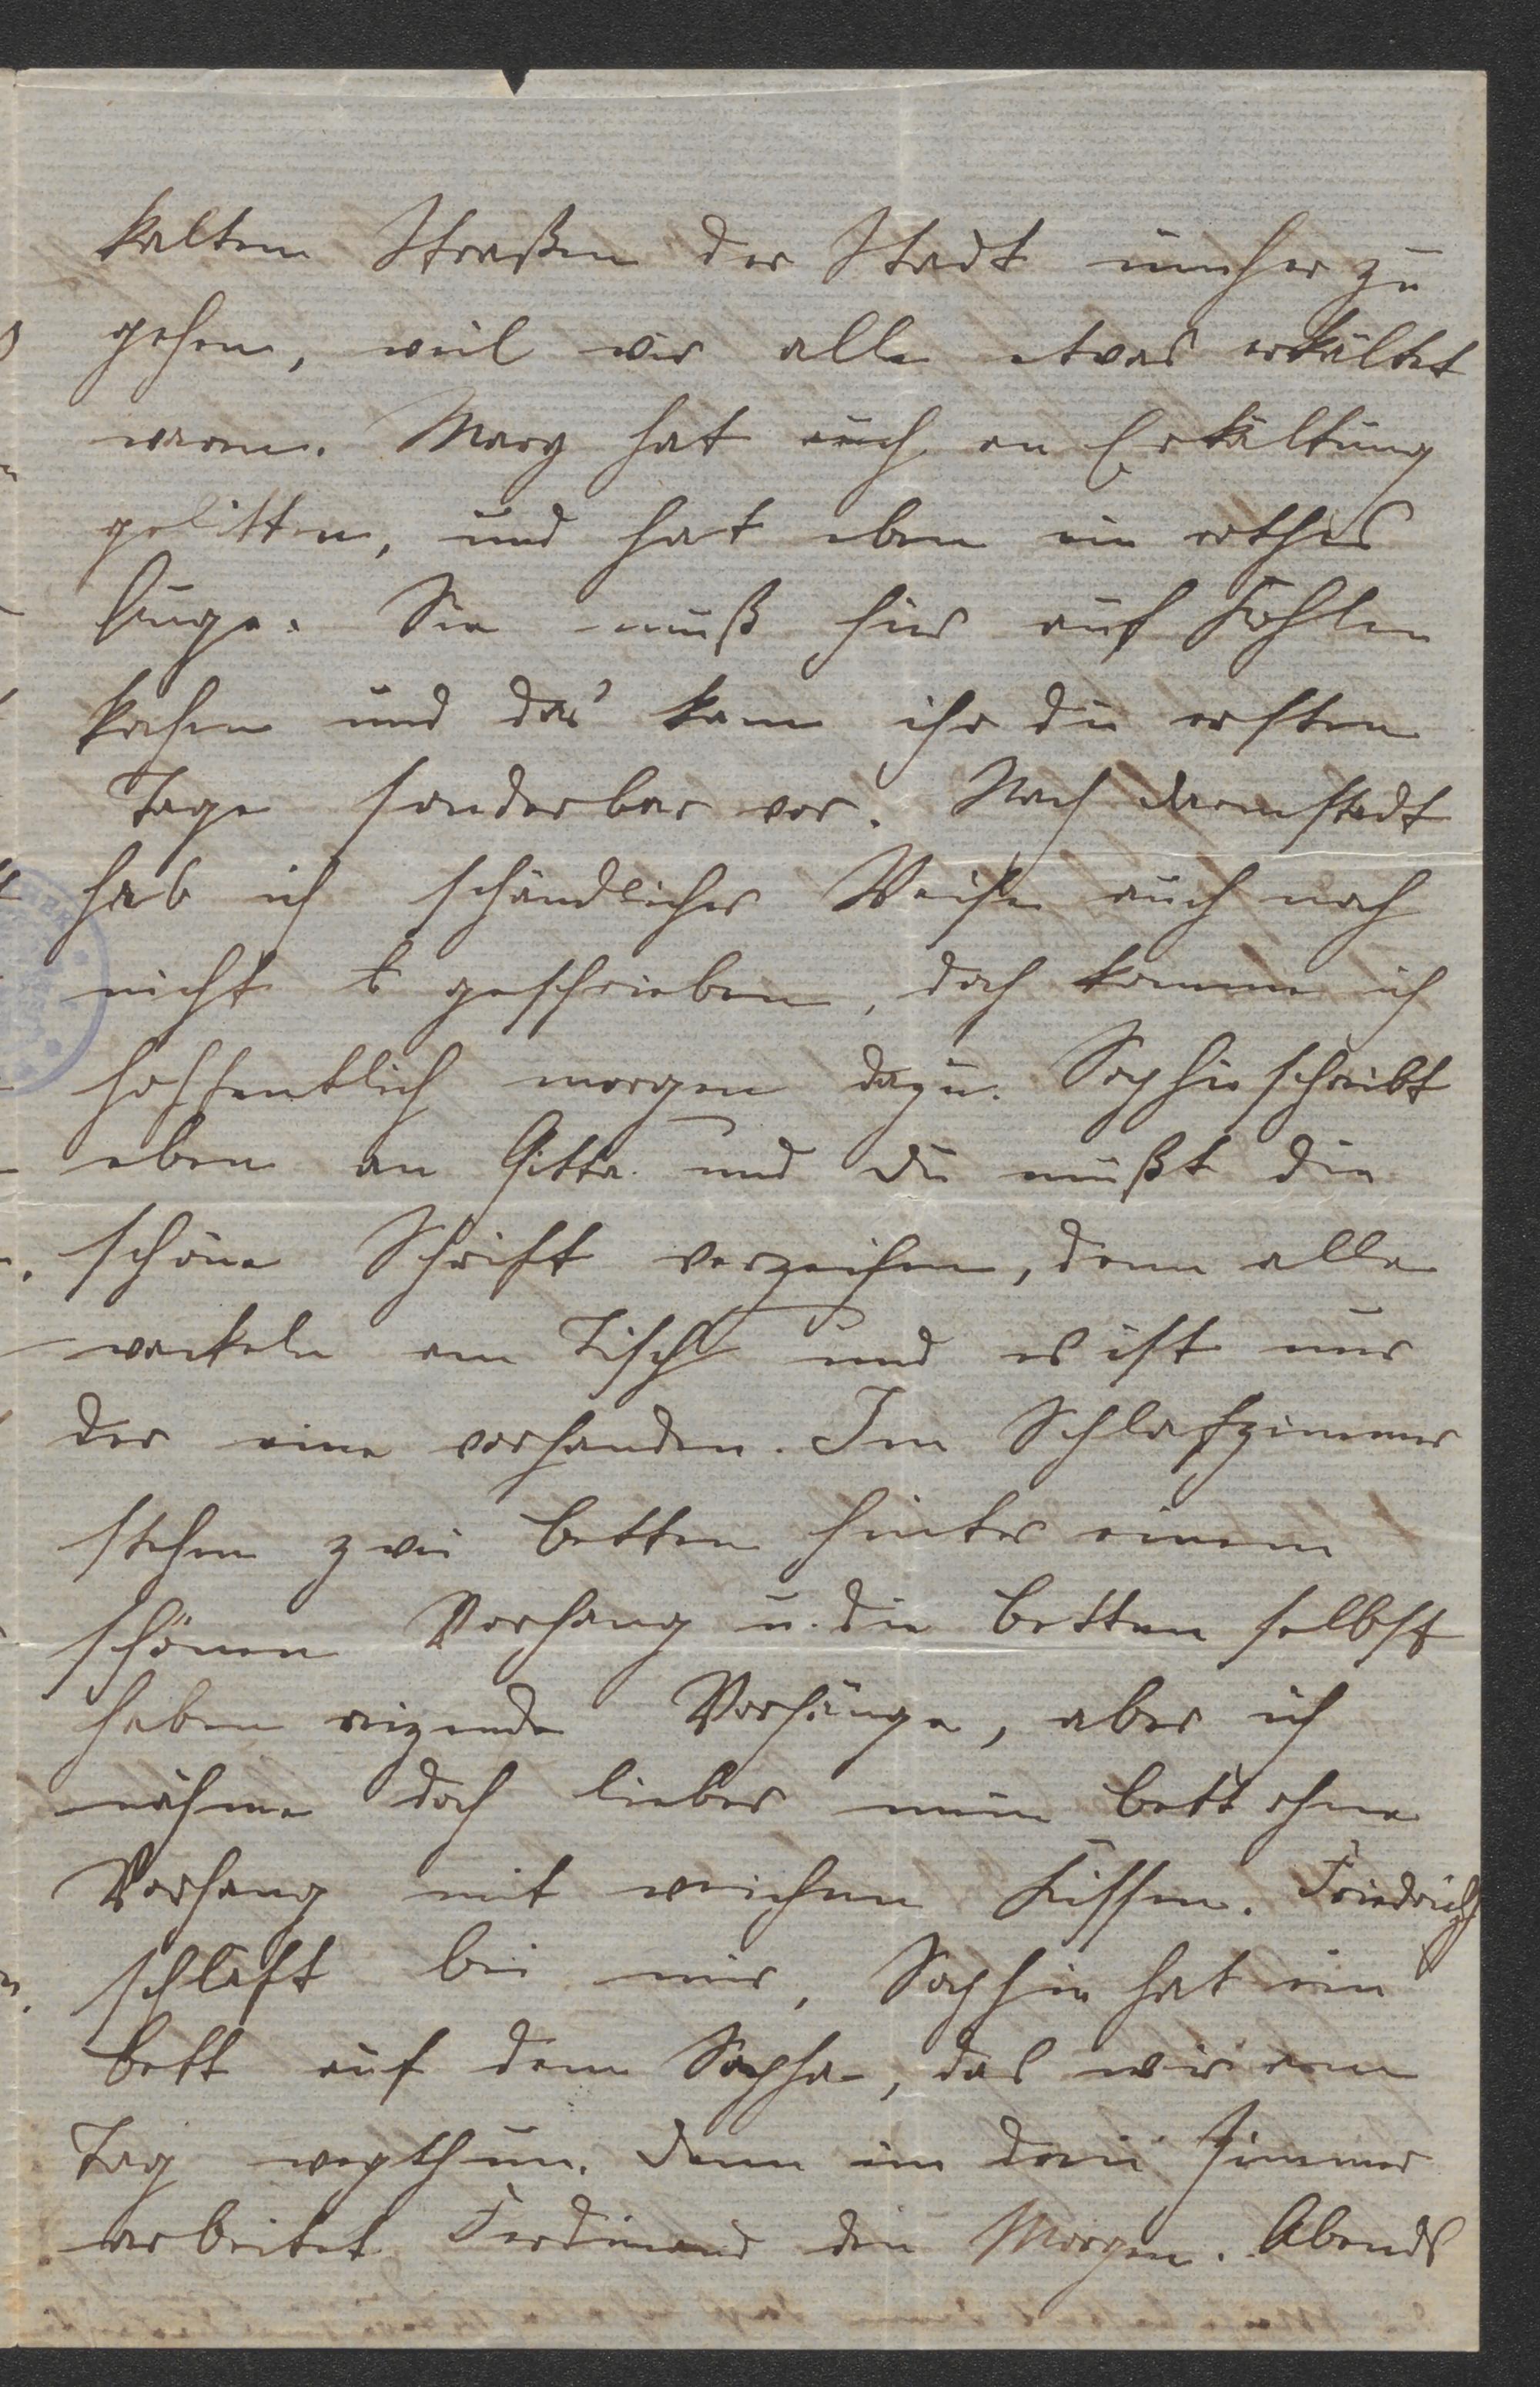 kalten Straßen der Stadt umher zu
gehen, weil wir alle etwas erkältet
waren. Mary hat auch an Erkältung
gelitten, und hat eben ein rothes
Auge. Sie muß hier auf Kohlen
kochen und das kam ihr die ersten
Tage sonderbar vor. Nach Darmstadt
hab ich schändlicher Weise auch noch
nicht geschrieben, doch komme ich
hoffentlich morgen dazu. Sophie schreibt
eben an Gitta und Du mußt die
schöne Schrift verzeihen, denn alle
wackeln am Tisch und es ist nur
der eine vorhanden. Im Schlafzimmer
stehen zwei Betten hinter einem
schönen Vorhang u. die Betten selbst
haben reizende Vorhänge, aber ich
nähme doch lieber mein Bett ohne
Vorhang mit weichen Kissen. Friedrich
schläft bei mir, Sophie hat ein
Bett auf dem Sopha, das wir am
Tag wegthun. Denn im Zimmer
arbeitet Ferdinand den Morgen. Abends